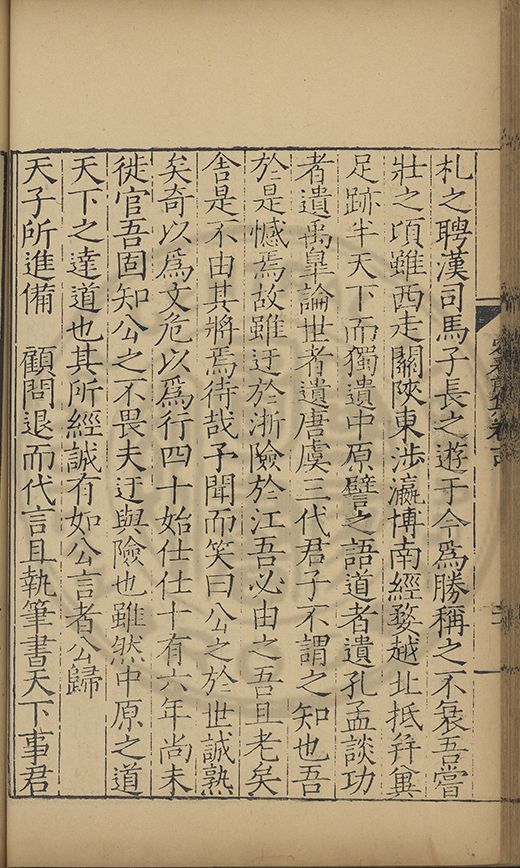 札之聘漢司馬子長之遊于今爲勝稱之不衰吾嘗
壯之頃雖西走關陝東渉瀛博南經婺越北抵幷冀
足跡半天下而獨遺中原譬之語道者遺孔孟談功
者遺禹臯論世者遺唐虞三代君子不謂之知也吾
於是憾焉故雖迂於浙險於江吾必由之吾且老矣
舍是不由其將焉待哉予聞而笑曰公之於世誠熟
矣奇以爲文危以爲行四十始仕仕十有六年尚未
徙官吾固知公之不畏夫迂與險也雖然中原之道
天下之達道也其所經誠有如公言者公歸
天子所進備 顧問退而代言且執筆書天下事君